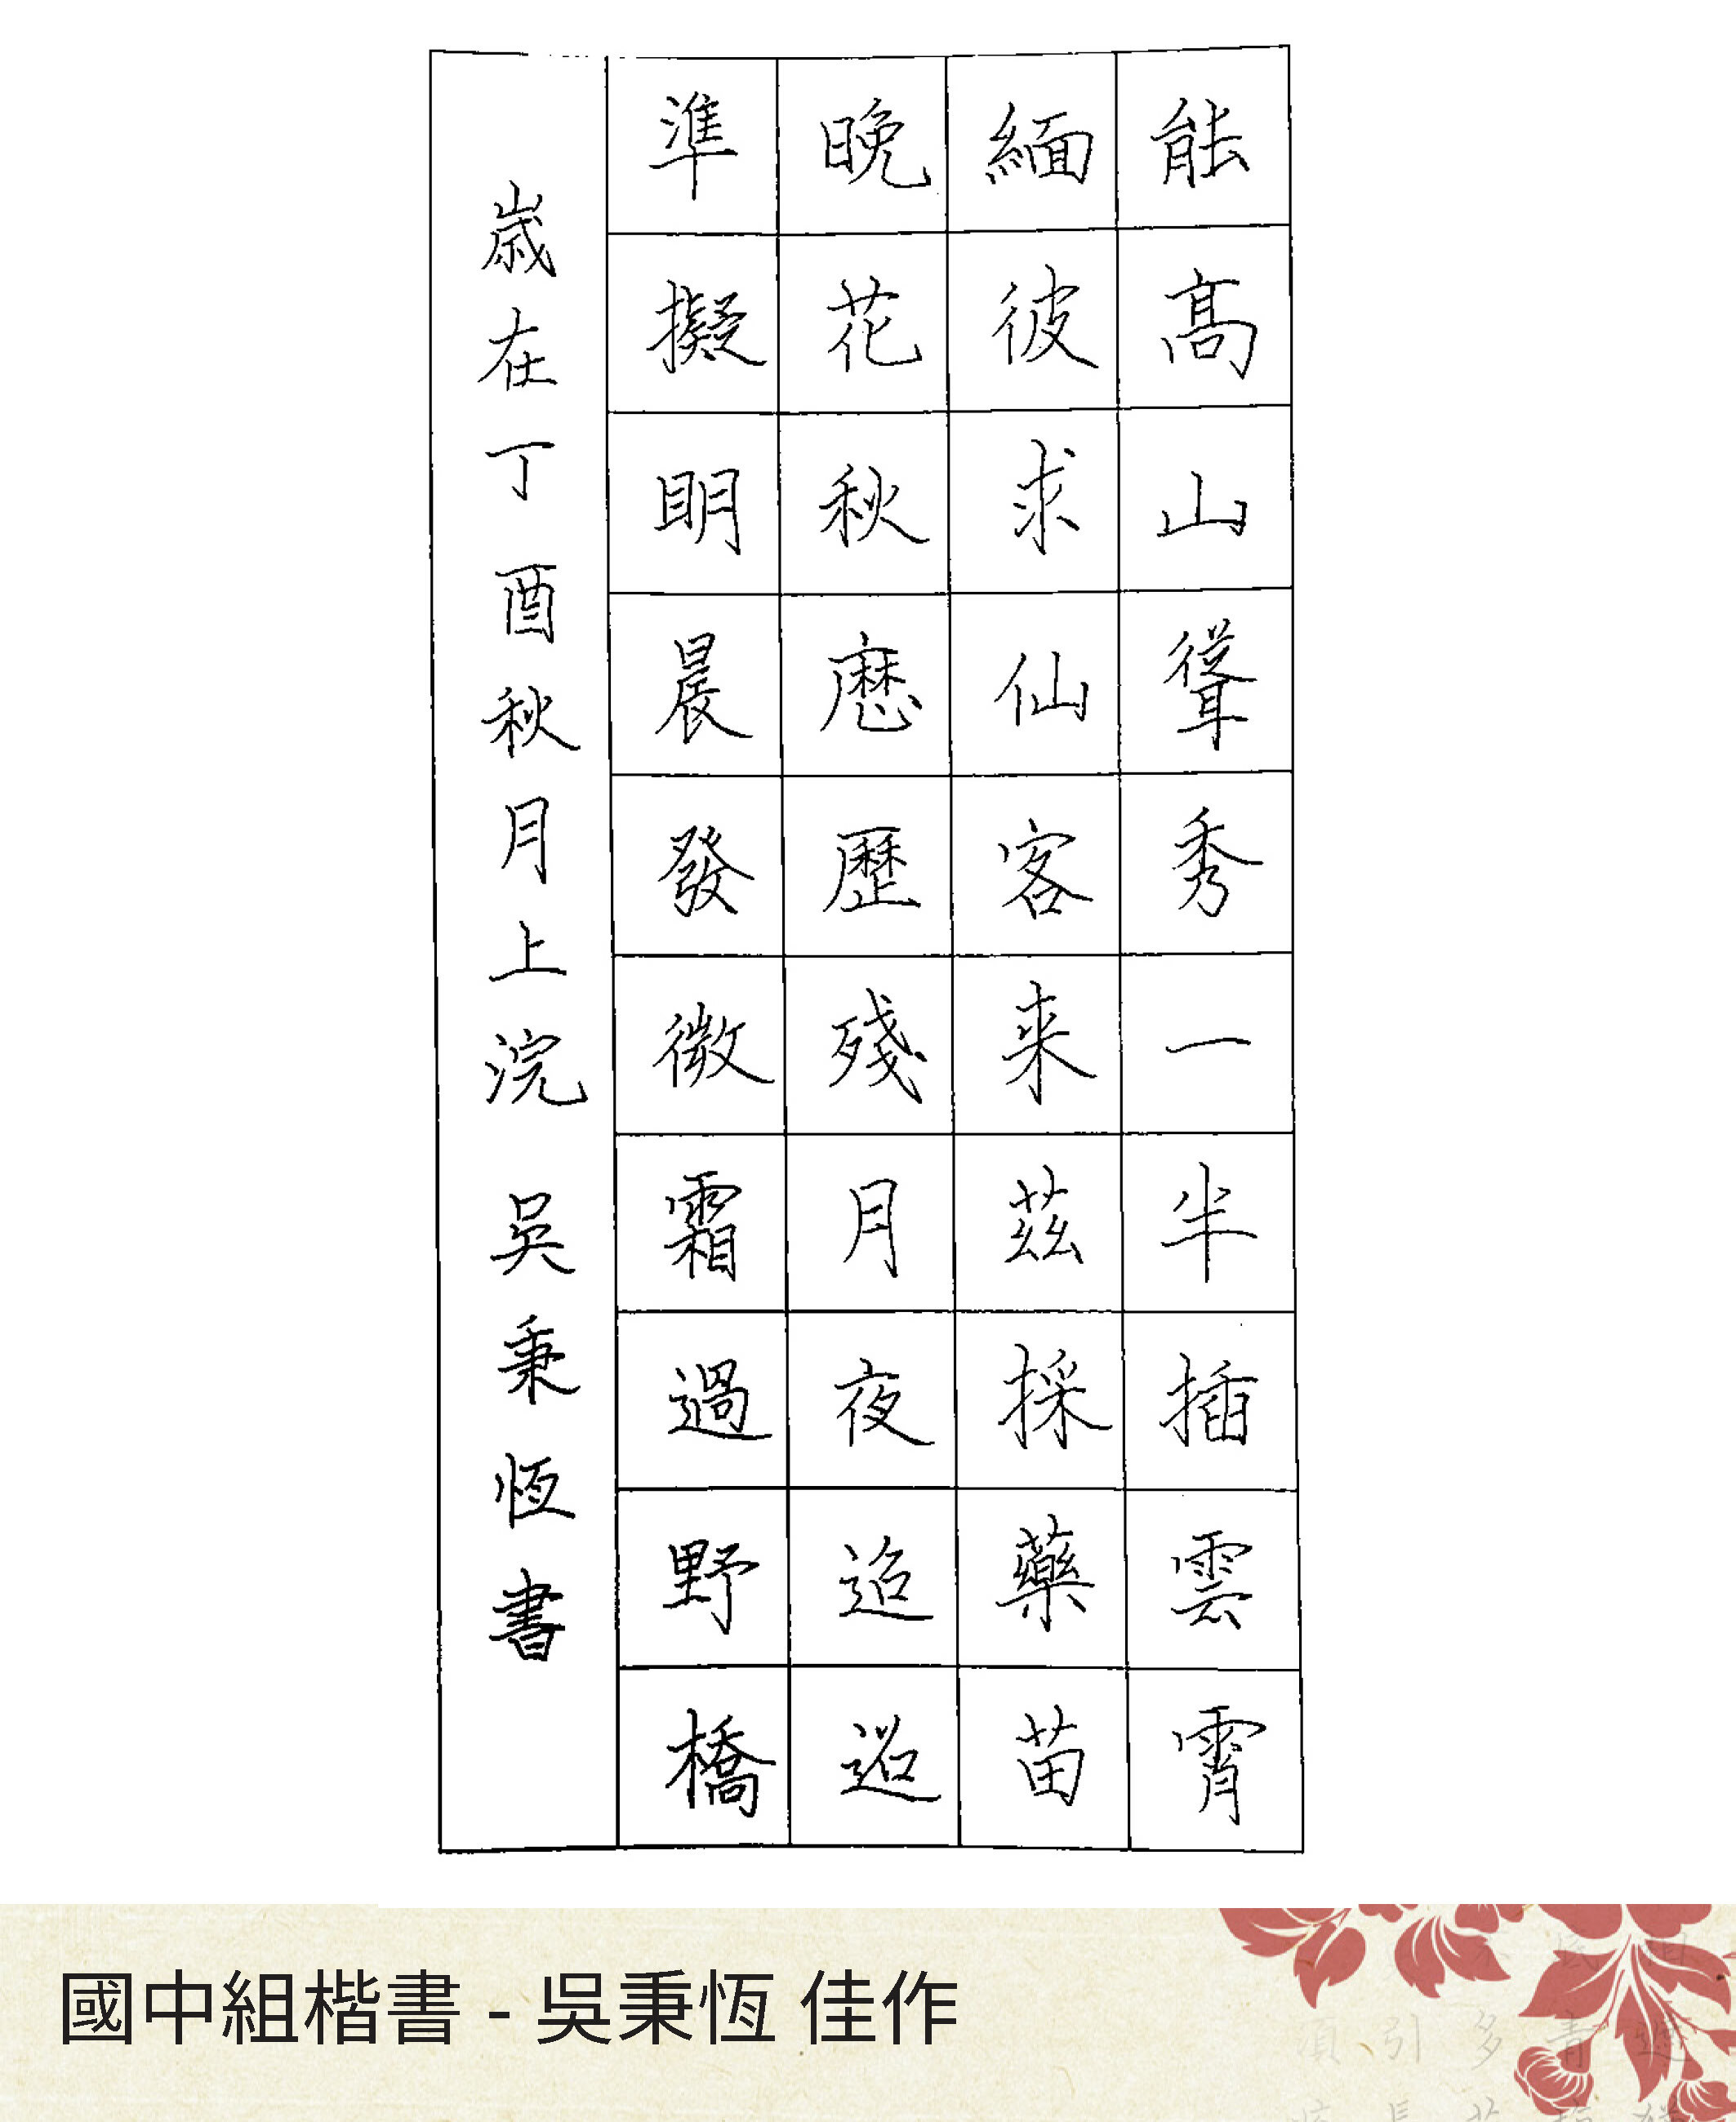 能高山聳秀一半插雲霄
緬彼求仙客来茲採藥苗
晚花秋歷歷殘月夜迢迢
準擬明晨發微霜過野橋
歲在丁酉秋月上浣 吳秉恆書
國中組楷書 - 吳秉恆 佳作